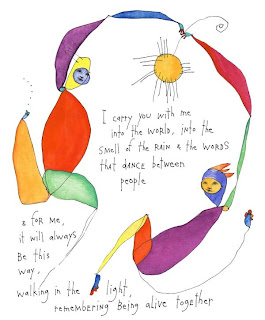 I carry you with me
into the WORLD, into the
smell of the RAIN & the WORDS
that DANCE between
people
& for me,
it will always
Be this
way,
walking in the light,
remembering Being alive together